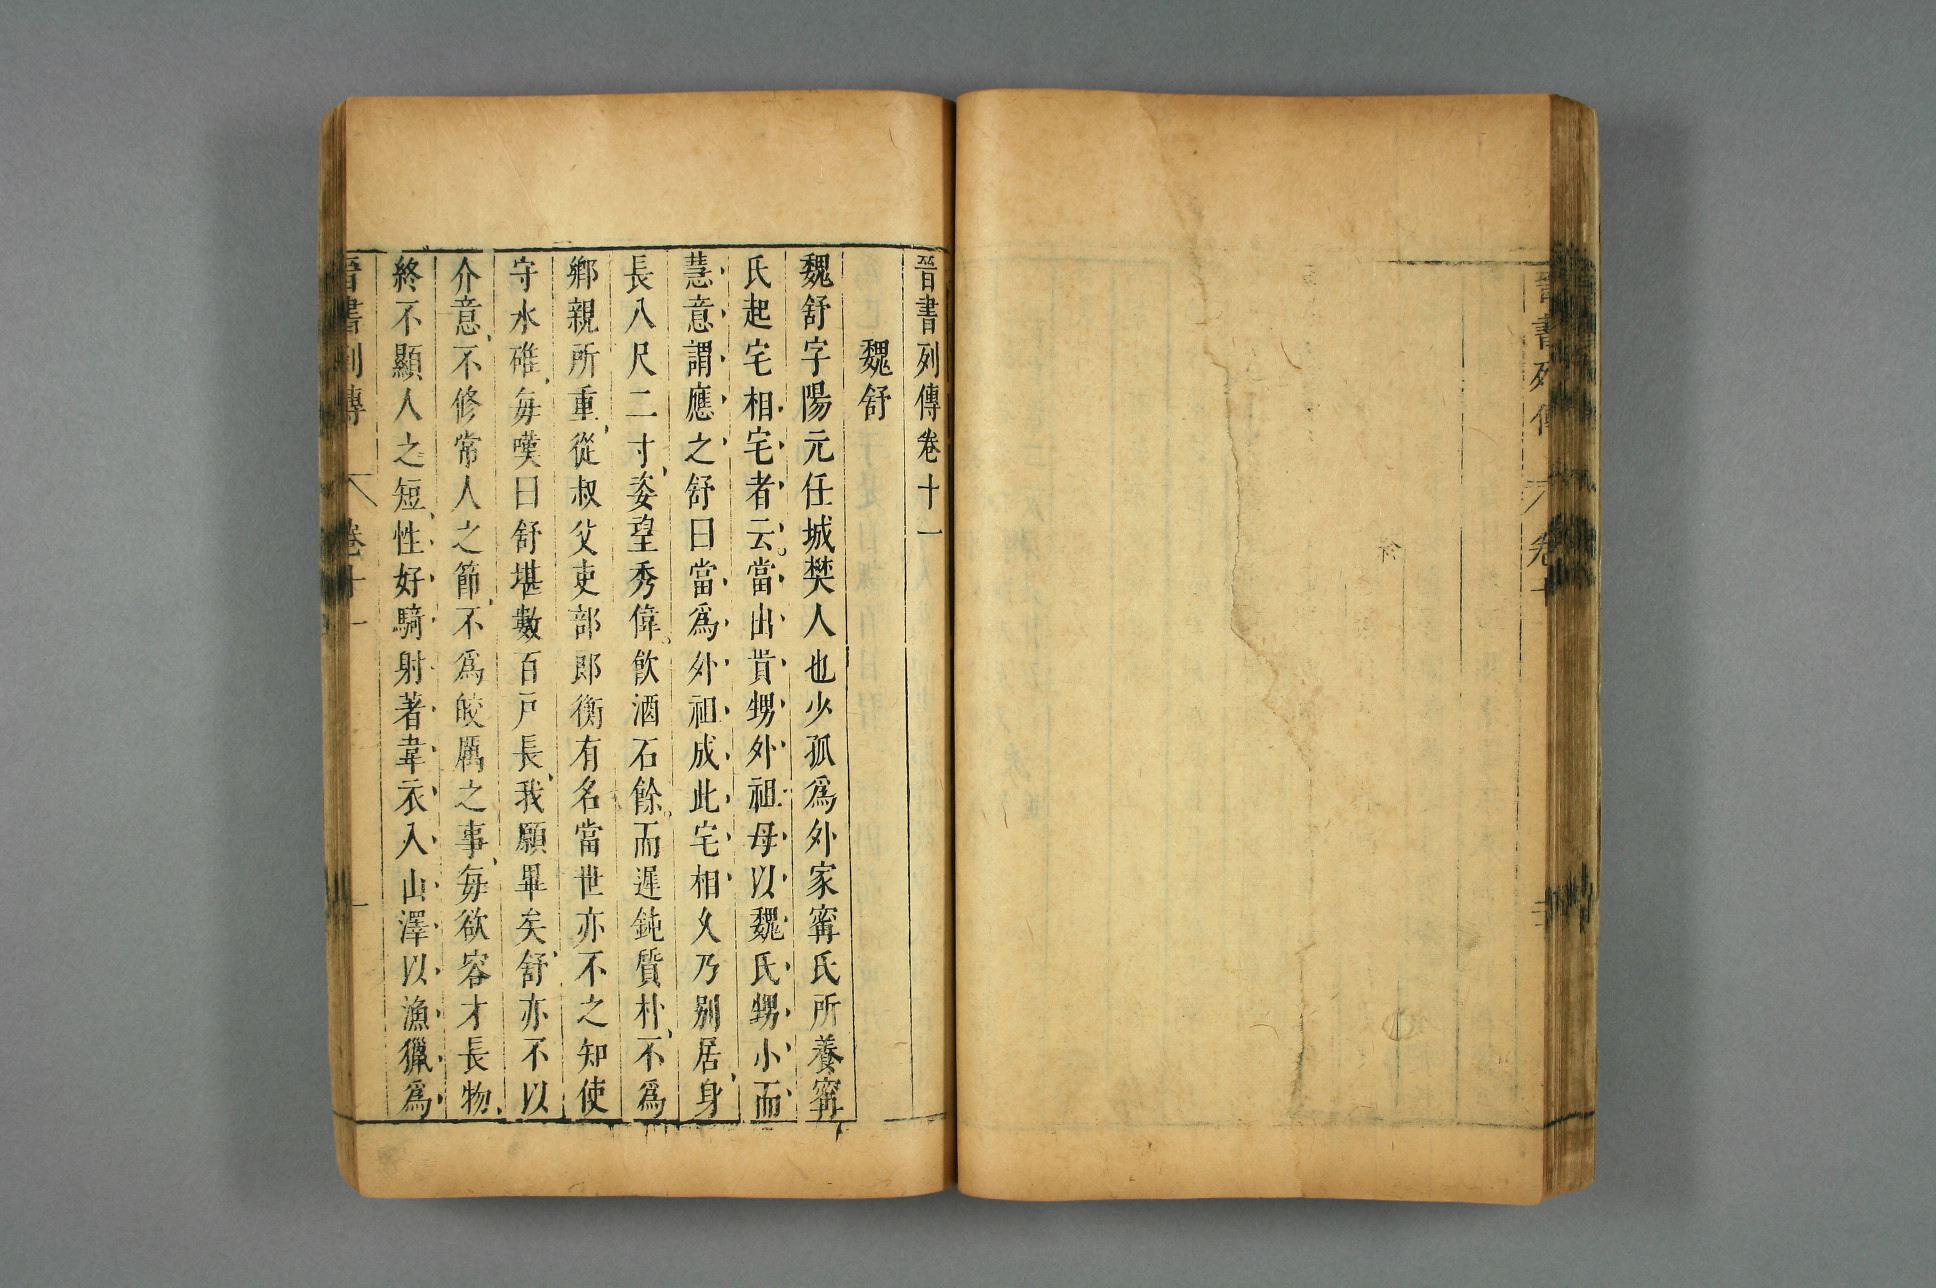 晉書列傳
卷十
晉書列傳卷十一
魏舒
魏舒字陽元任城樊人也少孤爲外家甯氏所養甯
氏起宅相宅者云當出貴甥外祖母以魏氏甥小而
慧意謂應之舒曰當爲外祖成此宅相久乃別居身
長八尺二寸姿望秀偉飲酒石餘而遲鈍質朴不爲
鄉親所重從叔父吏部郎衡有名當世亦不之知使
守水碓每嘆曰舒堪數百戶長我願畢矣舒亦不以
介意不修常人之節不爲皎厲之事每欲容才長物
終不顯人之短性好騎射著韋衣入山澤以漁獵爲
晉書列傳 卷十一 一